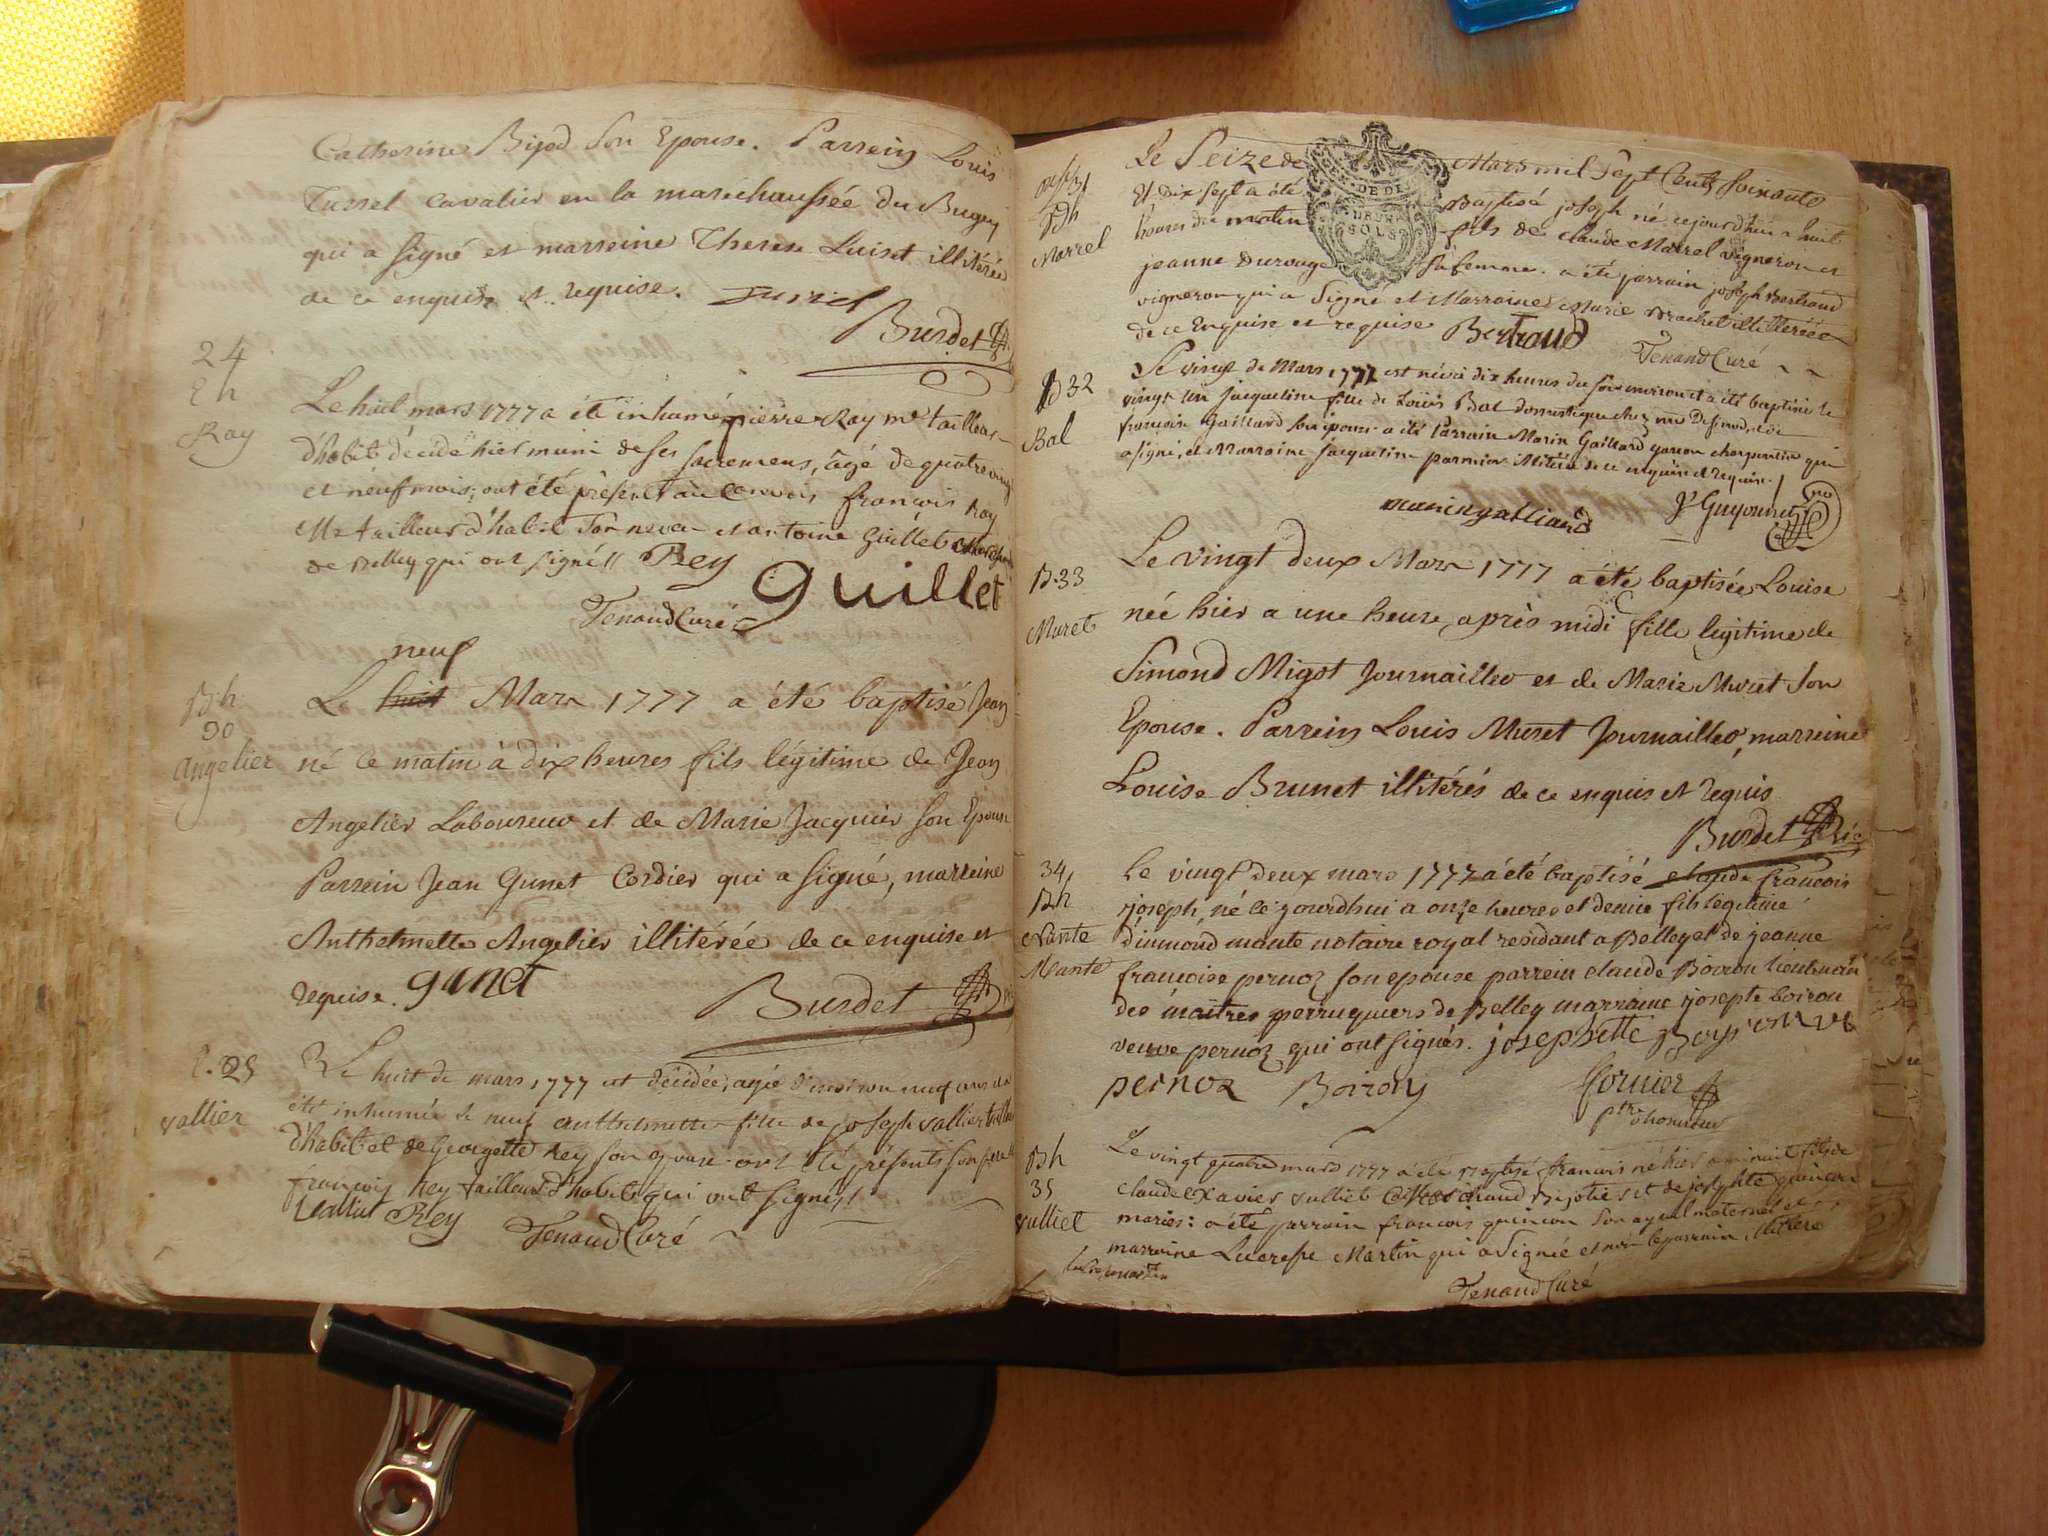 Catherine Bijod son Epouse. Parrein Louis
Tussel cavalier en la maréchaussée du Bugey
qui a signé et marreine Therese Luiset illitérée
de ce enquise et requise.
Burdet
24
Ray
Le huit mars 1777 a été inhumé pierre Ray me tailleur
d'habit décédé hier muni de ses sacremens, âgé de quatre vingt
et neuf mois; ont été présents au convois françois Ray
Me tailleur d'habit son neveu et antoine Guillet
de Belley qui ont signés Rey
guillet
Tenand Curé
neuf
B h
30
Angelier
Le huit Mars 1777 a été baptisé Jean
né ce matin à dix heures fils légitime de Jean
Angelier Laboureur et de Marie Jacquier son Epouse
Parrein Jean Gunet Cordier qui a signé, marreine
Anthelmette Angelier illitérée de ce enquise et
requise. gunet
Burdet
25
vallier
Le huit de mars 1777 est décédée, agée d'environ neuf ans
été inhumée le neuf anthelmette fille de joseph vallier
d'habit et de Georgette Rey son epouse ont été présents
françois Rey tailleur d'habit qui ont signés
Rey Tenand Curé
31
Bh
Marrel
Le Seize de Mars mil Sept Cents Soixante
Et Dix Sept a été Baptisé joseph né cejourd'hui a huit
heures du matin fils de claude Marrel vigneron et
EN. DE DI
SOLS
jeanne Durouge sa femme. a été parrain joseph Bertrand
vigneron qui a signé et Marraine Marie Brachet illitterée
de ce Enquise et requise Bertrand
Tenand Curé
B 32
Bal
Le vingt de Mars 1777 est née à dix heures du soir environ et a été baptisée le
vingt un jacqueline fille de Louis Bal domestique chez
françoise Gaillard son épouse a été Parrain Marin Gaillard garçon charpentier qui
a signé, et Marraine jacqueline parmier illitérée de ce enquise et requise.
B. 33
Muret
Le vingt deux Mars 1777 a été baptisée Louise
née hier a une heure, après midi fille légitime de
Simond Migot Journailler et de Marie Muret son
Epouse. Parrein Louis Muret Journailler, marreine
Louise Brunet illitérés de ce enquis et requis
Burdet Vic
34
Bh
Mante
Le vingt deux mars 1777 a été baptisé claude francois
joseph, né ce jourdhui a onze heures et demie fils legitime
mante notaire royal residant a Belley et de jeanne
francoise pernoz son epouse parrein claude Boiron lieutenant
des maitres perruquiers de Belley marraine josepte boiron
veuve pernoz qui ont signés. josephette
pernoz Boiron
Bh
35
vulliet
Le vingt quatre mars 1777 a été Baptisé francois né hier a minuit fils de
claude Xavier vulliet marchand Bijotier et de josephte quincon
mariés: a été parrain françois quincon son ayeul maternel et
marraine Lucresse Martin qui a signée et non le parrain illitéré
Tenand Curé